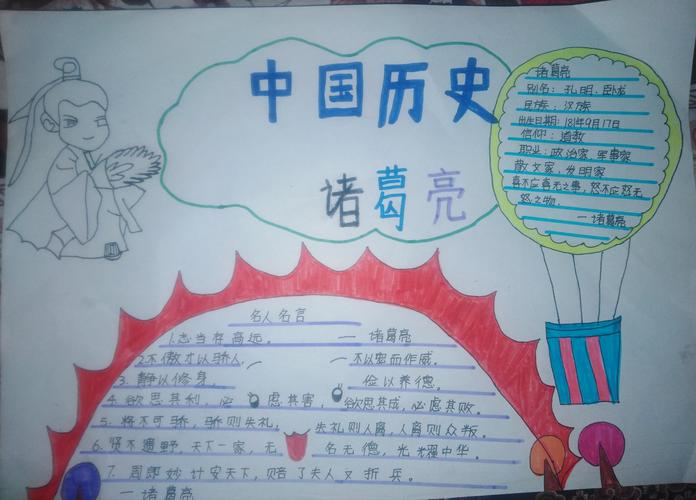 中国历史
诸葛亮
诸葛亮
别名：孔明、卧龙
民族：汉族
出生日期：181年9月17日
信仰：道教
职业：政治家、军事家
散文家、发明家
喜不应喜无之事，怒不应怒无
怒之物。
一诸葛亮
名人名言
1.志当存高远。 一 诸葛亮
2.不傲才以骄人， 不以宠而作威。
3.静以修身， 俭以养德。
4.欲思其利，必虑其害，欲思其成，必虑其败。
5.将不可骄，骄则失礼， 失礼则人离，人离则众叛。
6.贤不遗野，天下一家，无 名无德，光耀中华。
7.周郎妙计安天下，赔了夫人又折兵。
一诸葛亮